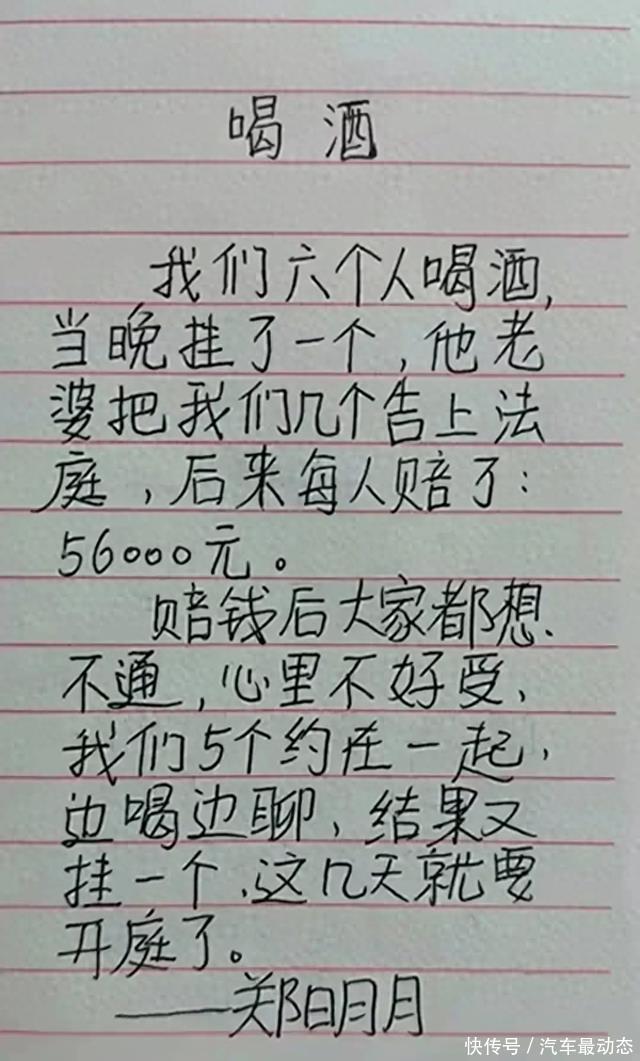 喝酒
我们六个人喝酒,
当晚挂了一个,他老
婆把我们几个告上法
庭,后来每人赔了:
56000元。
赔钱后大家都想
不通,心里不好受、
我们5个约在一起,
边喝边聊、结果又
挂一个、这几天就要
开庭了。
——郑明月
快传号/汽车最动态